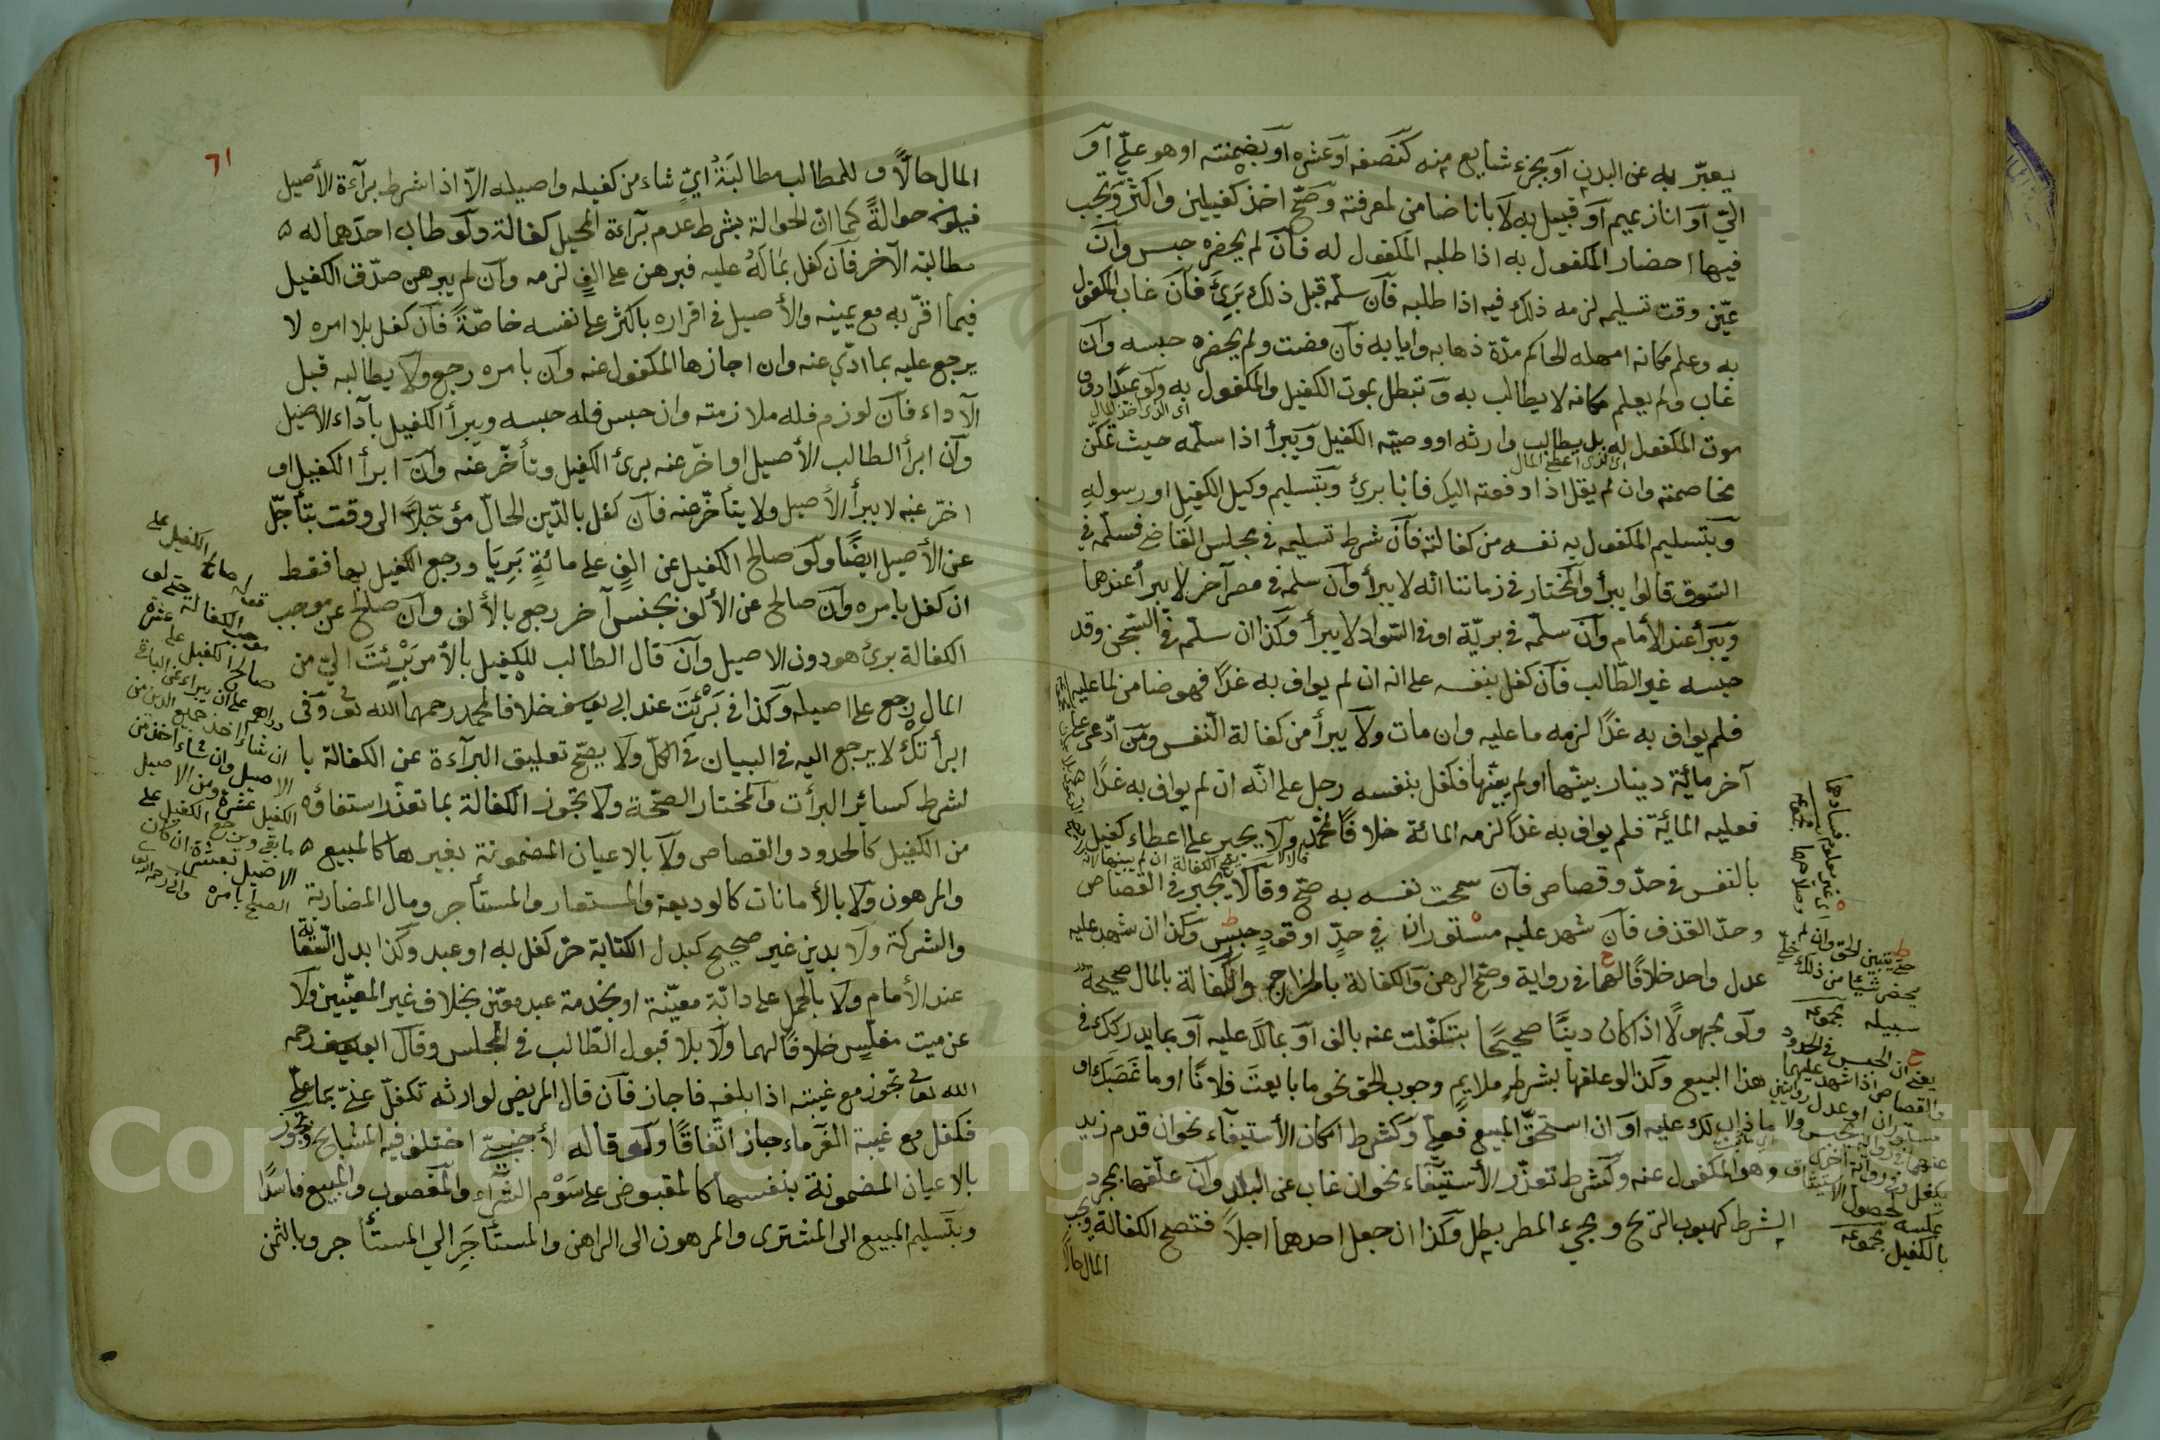 يعبّر به عن البدن أو بجزء شايع منه كنصفه أو عشره أو بضمنته أو هو عليّ أو
اليّ أو انا زعيم أو قبيل به لا بانا ضامن لمعرفته وصحّ اخذ كفيلين واكثر ويجب
فيها احضار المكفول به اذا طلبه المكفول له فان لم يحضره حبس وان
عيّن وقت تسليمه لزمه ذلك فيه اذا طلبه فان سلّمه قبل ذلك بَرِئَ فان غاب المكفول
به وعلم مكانه امهله الحاكم مدّة ذهابه وايابه فان مضت ولم يحضره حبسه وان
غاب ولم يعلم مكانه لا يطالب به وتبطل بموت الكفيل والمكفول به ولو عبدًا دون
موت المكفول له بل يطالب وارثه او وصيّه الكفيل ويبرأ اذا سلّمه حيث تمكّن
مخاصمته وان لم يقل اذا دفعته اليك فانا بريٌ وبتسليم وكيل الكفيل او رسوله
وبتسليم المكفول به نفسه من كفالته فان شرط تسليمه في مجلس القاضي فسلّمه في
السّوق قالوا يبرأ والمختار في زماننا انّه لا يبرأ وان سلمه في مصر آخر لا يبرأ عندهما
ويبرأ عند الأمام وان سلّمه في بريّة او في السّواد لا يبرأ وكذا ان سلّم في السّجن وقد
حبسه غير الطّالب فان كفل بنفسه على انه ان لم يواف به غدًا فهو ضامن لما عليه
فلم يواف به غدًا لزمه ما عليه وان مات ولا يبرأ من كفالة النّفس ومن ادّعى على
آخر مائة دينار بيّنها او لم يبيّنها فكفل بنفسه رجل على انّه ان لم يواف به غدًا
فعليه المائة فلم يواف به غدًا لزمه المائة خلافًا لمحمّد ولا يجبر على اعطاء كفيل
بالنفس في حدّ وقصاص فان سمحت نفسه به صحّ وقالا يجبر في القصاص
وحدّ القذف فان شهد عليه مستوران في حدّ او قود حبس وكذا ان شهد عليه
عدل واحد خلافًا لهما في رواية وصحّ الرهن والكفالة بالخراج والكفالة بالمال صحيحة
ولو مجهولًا اذا كان دينًا صحيحًا بتكفّلت عنه بالف او بمالك عليه او بما يدركك في
هذا البيع وكذا لو علقها بشرط ملايم وجوب الحق نحو ما بايعت فلانًا او ما غصبك او
ما ذاب لك عليه او ان استحقّ المبيع فعليّ وكشرط امكان الأستيفاء نحو ان قدم زيد
وهو المكفول عنه وكشرط تعذّر الأستيفاء نحو ان غاب عن البلد وان علّقها بمجرد
الشرط كهبوب الريح ومجيء المطر بطل وكذا ان جعل احدهما اجلًا فتصح الكفالة ويجب
المال حالًا
اى الذي اخذ المال
اى الذي اعطى المال
اى غير معلوم فسادها
وصلاحها مجموعه
حتى يتبين الحق وان لم
يحضر شيئًا من ذلك خلّي
سبيله مجموعه
يعني ان الحبس في الحدود
والقصاص اذا شهد عليهما
مستوران او عدل
يكفل وفي رواية
بالكفيل مجموعه
٦١
المال حالًّا وللمطالب مطالبَةُ ايٍّ شاء من كفيله واصيله الّا اذا شرط برآءة الأصيل
فيكون حوالةً كما انّ الحوالة بشرط عدم برآءة المحيل كفالة ولو طالب احدهما له
مطالبة الآخر فان كفل بمالَهُ عليه فبرهن على الفٍ لزمه وان لم يبرهن صدّق الكفيل
فيما اقرّ به مع يمينه والأصيل في اقراره باكثر على نفسه خاصّةً فان كفل بلا امره لا
يرجع عليه بما ادّى عنه وان اجازها المكفول عنه وان بامره رجع ولا يطالبه قبل
الآداء فان لوزم فله ملازمته وان حبس فله حبسه ويبرأ الكفيل بآداء الاصيل
وان ابرأ الطالب الأصيل او اخّر عنه برئ الكفيل وتأخّر عنه وان ابرأ الكفيل او
اخّر عنه لا يبرأ الأصيل ولا يتأخّر عنه فان كفل بالدّين الحالّ مؤجّلًا الى وقت يتأجّل
عن الأصيل ايضًا ولو صالح الكفيل عن الفٍ على مائةٍ بَرِيَا ورجع الكفيل بها فقط
ان كفل بامره وان صالح عن الألف بجنس آخر رجع بالألف وان صالح عن موجب
الكفالة برئ هو دون الاصيل وان قال الطالب للكفيل بالأمر بَرِئتَ اليّ من
المال رجع على اصيله وكذا في بَرِئتَ عند ابي يوسف خلافا لمحمد رحمهما الله تعالى وفي
ابرأتك لا يرجع اليه في البيان في الكلّ ولا يصحّ تعليق البرآءة عن الكفالة با
لشرط كسائر البرأت والمختار الصحّة ولا تجوز الكفالة بما تعذّر استيفاؤه
من الكفيل كالحدود والقصاص ولا بالاعيان المضمونة بغيرها كالمبيع
والمرهون ولا بالأمانات كالوديعة والمستعار والمستأجر ومال المضاربة
والشركة ولا بدين غير صحيح كبدل الكتابة حرّ كفل به او عبد وكذا بدل السّعاية
عند الأمام ولا بالحمل على دابّة معيّنة او بخدمة عبد معيّن بخلاف غير المعيّنين ولا
عن ميت مفلّس خلافًا لهما ولا بلا قبول الطّالب في المجلس وقال ابو يوسف رحمه
الله تعالى تجوز مع غيبته اذا بلغه فاجاز فان قال المريض لوارثه تكفّل عنّي بما عليّ
فكفل مع غيبة الغرماء جاز اتّفاقًا ولو قاله لأجنبيّ اختلف فيه المشايخ وتجوز
بالاعيان المضمونة بنفسها كالمقبوض على سَوْم الشّراء والمغصوب والمبيع فاسدًا
وبتسليم المبيع الى المشترى والمرهون الى الراهن والمستأجَر الى المستأجر وبالثمن
صالح الكفيل على
موجب الكفالة
صالح الكفيل على عشرة
دراهم على ان يبراء عن الباقي
ان شاء اخذ جميع الدين من
الاصيل وان شاء اخذ من
الكفيل عشرة ومن الاصيل
ما بقي ويرجع الكفيل على
الاصيل بعشرة ان كان
الصلح بامره